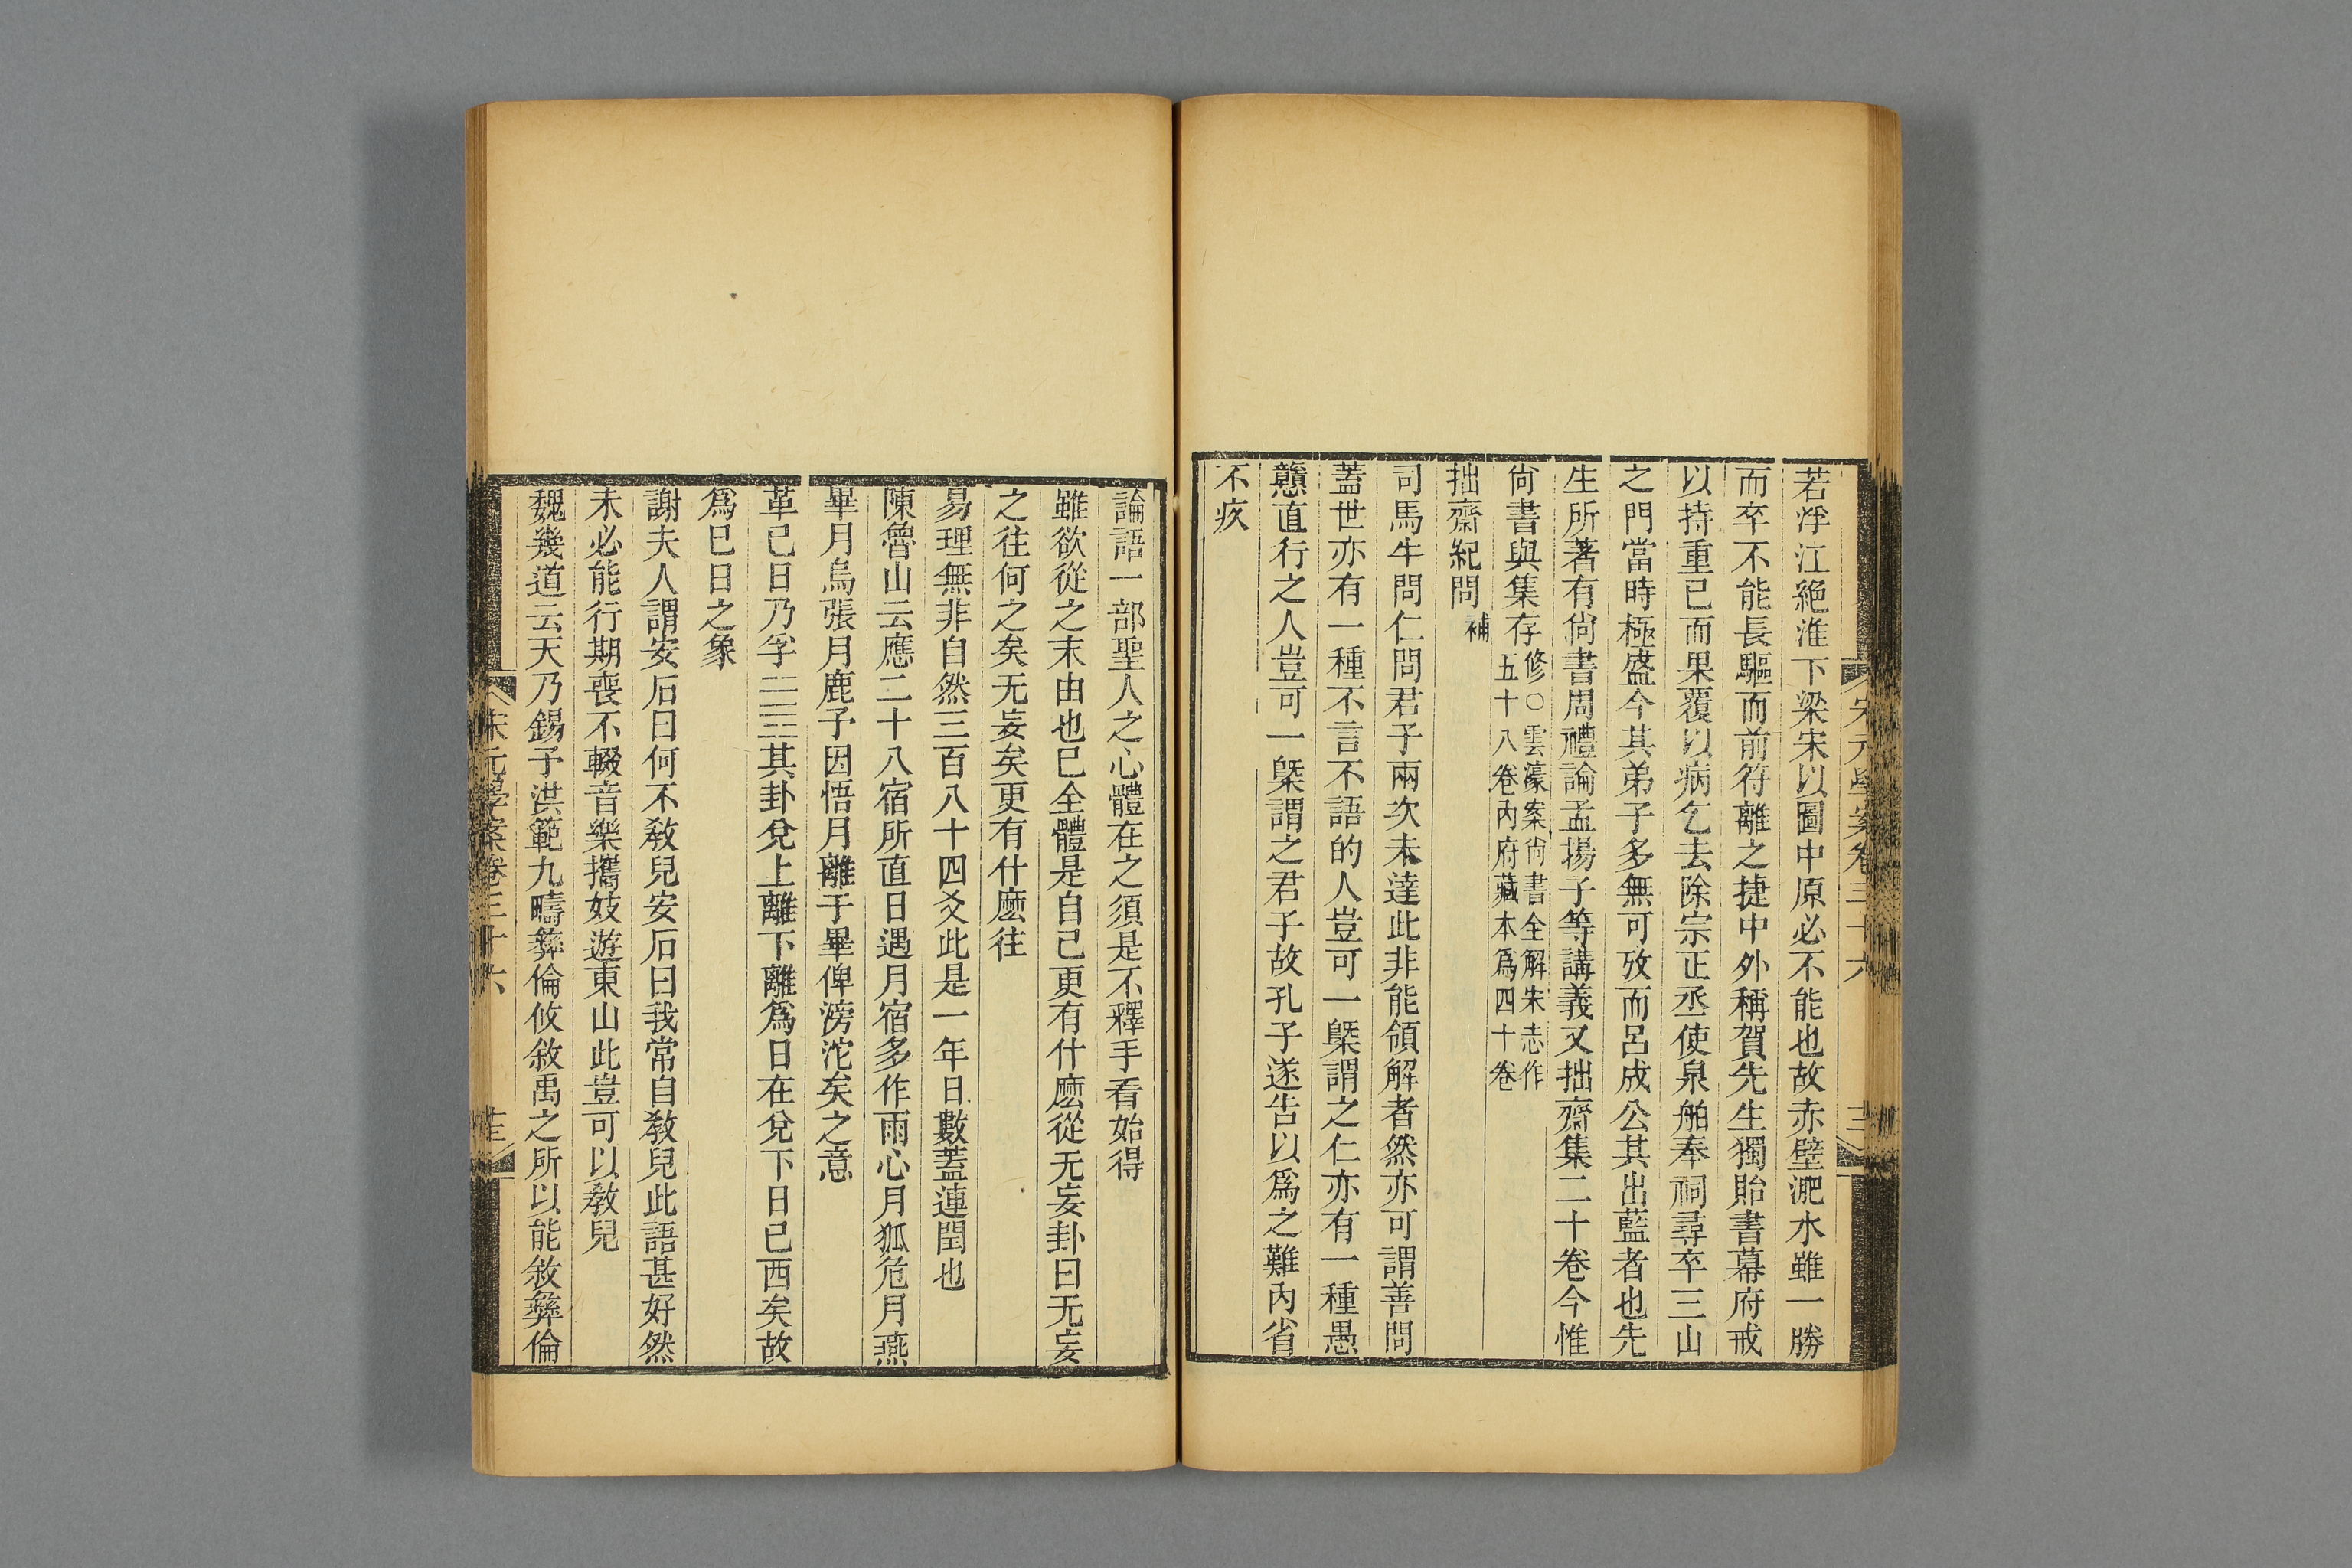 宋元學案卷三十六
若浮江絶淮下梁宋以圖中原必不能也故赤壁淝水雖一勝
而卒不能長驅而前符離之捷中外稱賀先生獨貽書幕府戒
以持重已而果覆以病乞去除宗正丞使泉舶奉祠尋卒三山
之門當時極盛今其弟子多無可攷而呂成公其出藍者也先
生所著有尙書周禮論孟揚子等講義又拙齋集二十卷今惟
尙書與集存修○雲濠案尙書全解宋志作
五十八卷內府藏本爲四十卷
拙齋紀問補
司馬牛問仁問君子兩次未達此非能領解者然亦可謂善問
蓋世亦有一種不言不語的人豈可一槩謂之仁亦有一種愚
戇直行之人豈可一槩謂之君子故孔子遂告以爲之難內省
不疚
論語一部聖人之心體在之須是不釋手看始得
雖欲從之末由也已全體是自己更有什麼從无妄卦曰无妄
之往何之矣无妄矣更有什麼往
易理無非自然三百八十四爻此是一年日數蓋連閏也
陳魯山云應二十八宿所直日遇月宿多作雨心月狐危月燕
畢月烏張月鹿予因悟月離于畢俾滂沱矣之意
革己日乃孚䷰其卦兌上離下離爲日在兌下日已西矣故
爲巳日之象
謝夫人謂安石曰何不敎兒安石曰我常自敎兒此語甚好然
未必能行期喪不輟音樂攜妓遊東山此豈可以敎兒
魏幾道云天乃錫予洪範九疇彝倫攸敘禹之所以能敘彝倫
宋元學案卷三十六